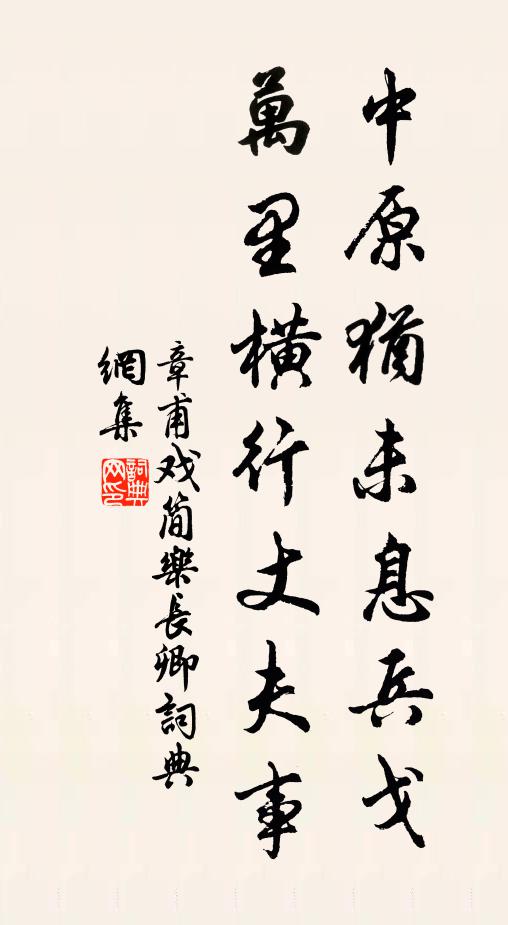 中原猶未息兵戈
萬里橫行丈夫事
章甫戏简樂長卿詞典
網集
詞典
网印